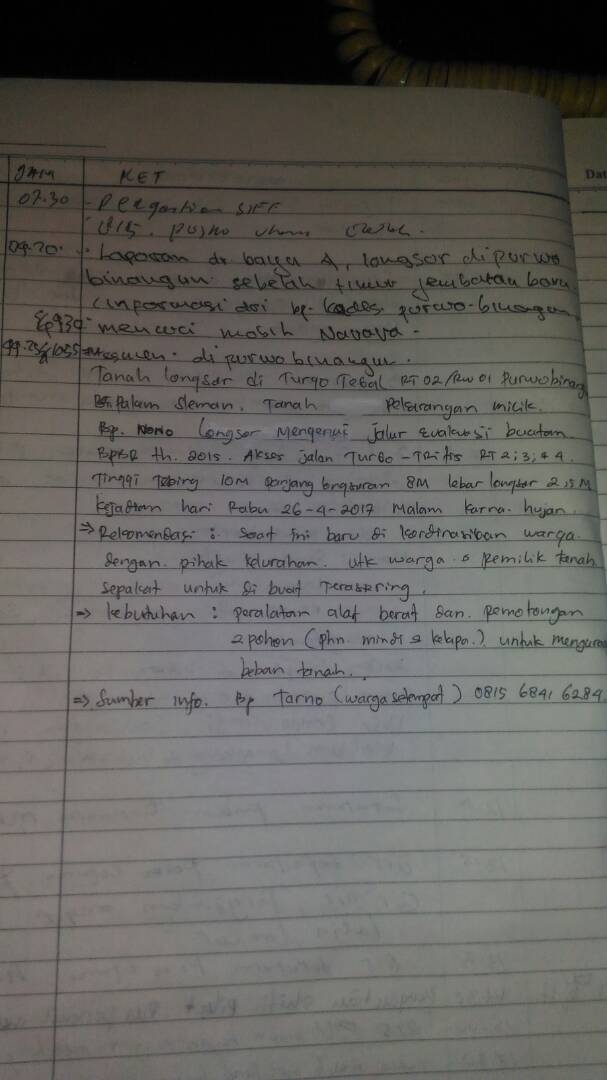 JAM KET Dat
07.30 - Pergantian Siff
09.20. - Laporan dr bagja A, longsor dipurwo
binangun sebelah timur jembatan baru.
(informasi dri bp. Kades purwo-binangun
mencuci mobil Navara.
Asesmen. di purwobinangun.
Tanah longsor di Turgo Tegal RT 02/RW 01 Purwobinang
Pakem Sleman. Tanah Pekarangan milik.
Bp. NONO Longsor Mengenai jalur Evakuasi buatan.
BPBD th. 2015. Akses jalan Turgo - Tritis RT 2; 3; & 4.
Tinggi Tebing 10M panjang longsoran 8M lebar longsor 2,5 M
Kejadian hari Rabu 26-4-2017 Malam karna hujan.
=> Rekomendasi : saat ini baru di koordinasikan warga.
dengan pihak kelurahan. utk warga & pemilik tanah
sepakat untuk di buat Terasering.
=> kebutuhan : peralatan alat berat dan pemotongan
2 pohon (phn. mindi & kelapa.) untuk mengura
beban tanah.
=> Sumber info. Bp Tarno (warga setempat) 0815 6841 6284.